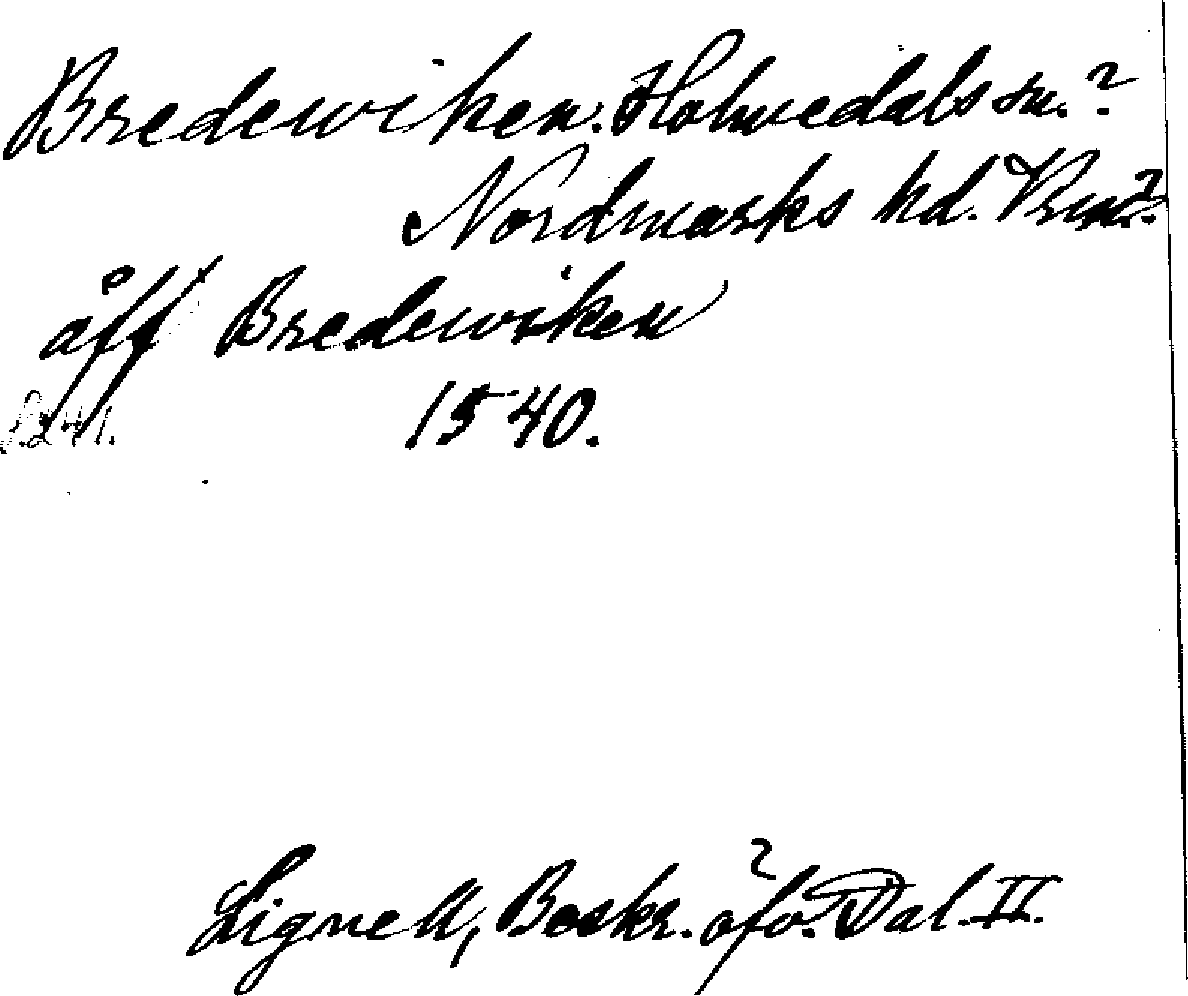 Bredewiken. Holmedals sn.?
Nordmarks hd. Vrml.?
åff Bredewiken
s. 241. 1540.
Lignell, Beskr. öfv. Dal II.